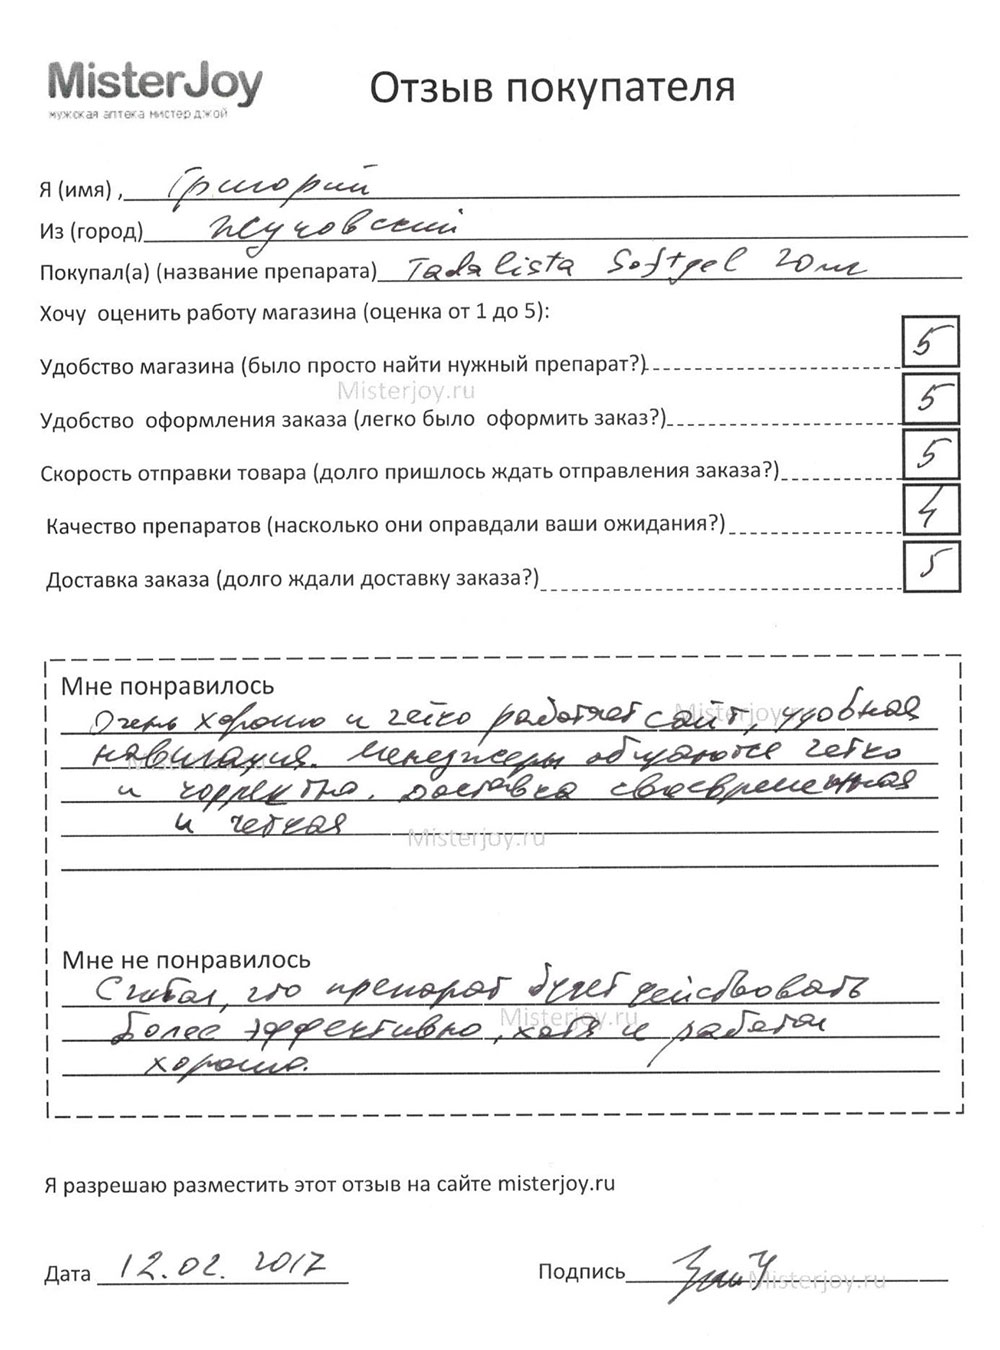 MisterJoy
мужская аптека мистер джой
Отзыв покупателя
Я (имя) , Григорий
Из (город) Жуковский
Покупал(а) (название препарата) Tadalista Softgel 20мг
Хочу оценить работу магазина (оценка от 1 до 5):
Удобство магазина (было просто найти нужный препарат?) 5
Misterjoy.ru
Удобство оформления заказа (легко было оформить заказ?) 5
Скорость отправки товара (долго пришлось ждать отправления заказа?) 5
Качество препаратов (насколько они оправдали ваши ожидания?) 4
Доставка заказа (долго ждали доставку заказа?) 5
Мне понравилось
Очень хорошо и четко работает сайт, удобная
Misterjoy.ru
навигация. Менеджеры общаются четко
и корректно. Доставка своевременная
и четкая
Misterjoy.ru
Мне не понравилось
Считал, что препарат будет действовать
Misterjoy.ru
более эффективно, хотя и работал
хорошо.
Я разрешаю разместить этот отзыв на сайте misterjoy.ru
Дата 12.02.2017
Подпись
Misterjoy.ru